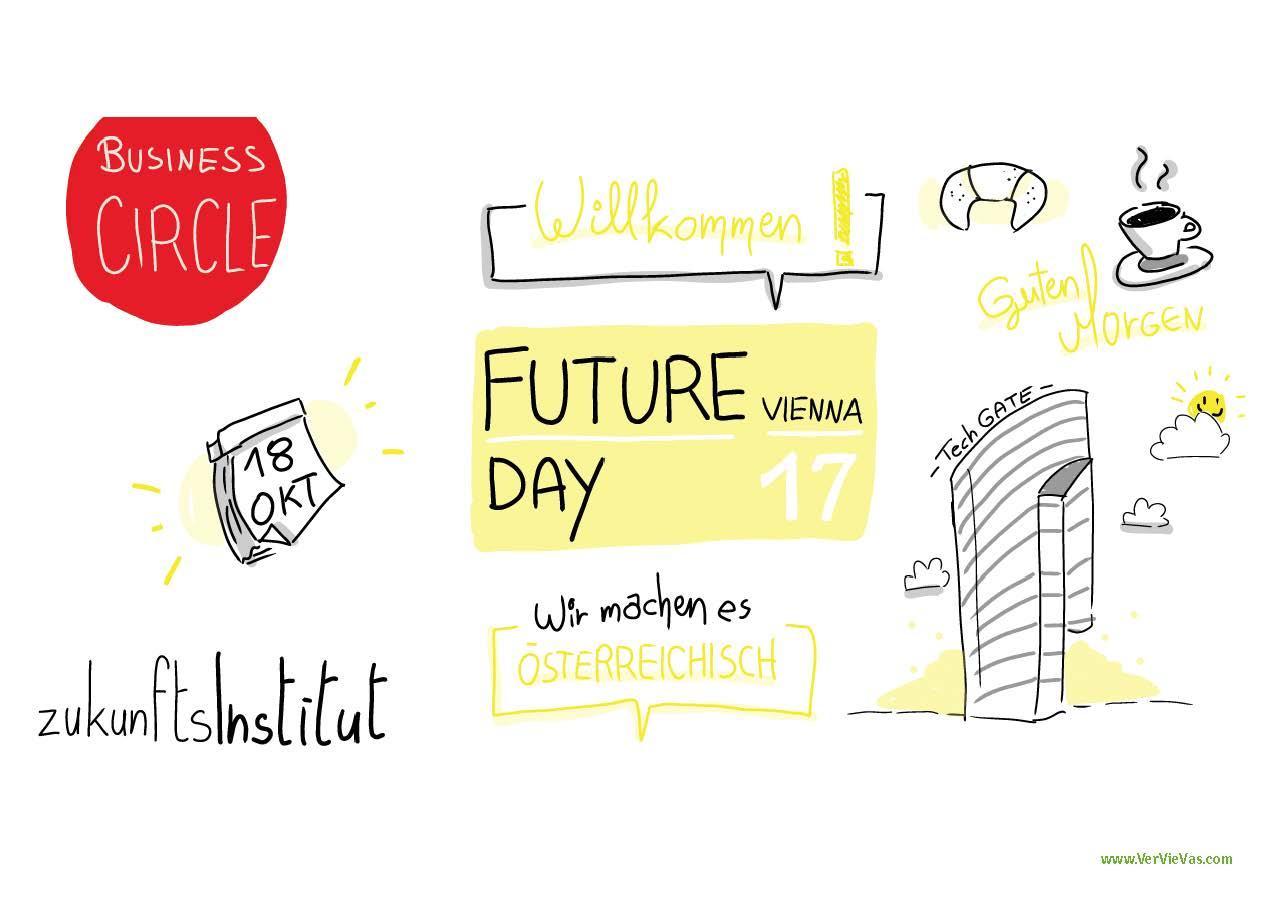 BUSINESS
CIRCLE
Willkommen!
FUTURE VIENNA
DAY 17
Guten
MorGEN
18
OKT
- Tech GATE -
Wir machen es
ÖSTERREICHISCH
zukunftsInstitut
www.VerVieVas.com